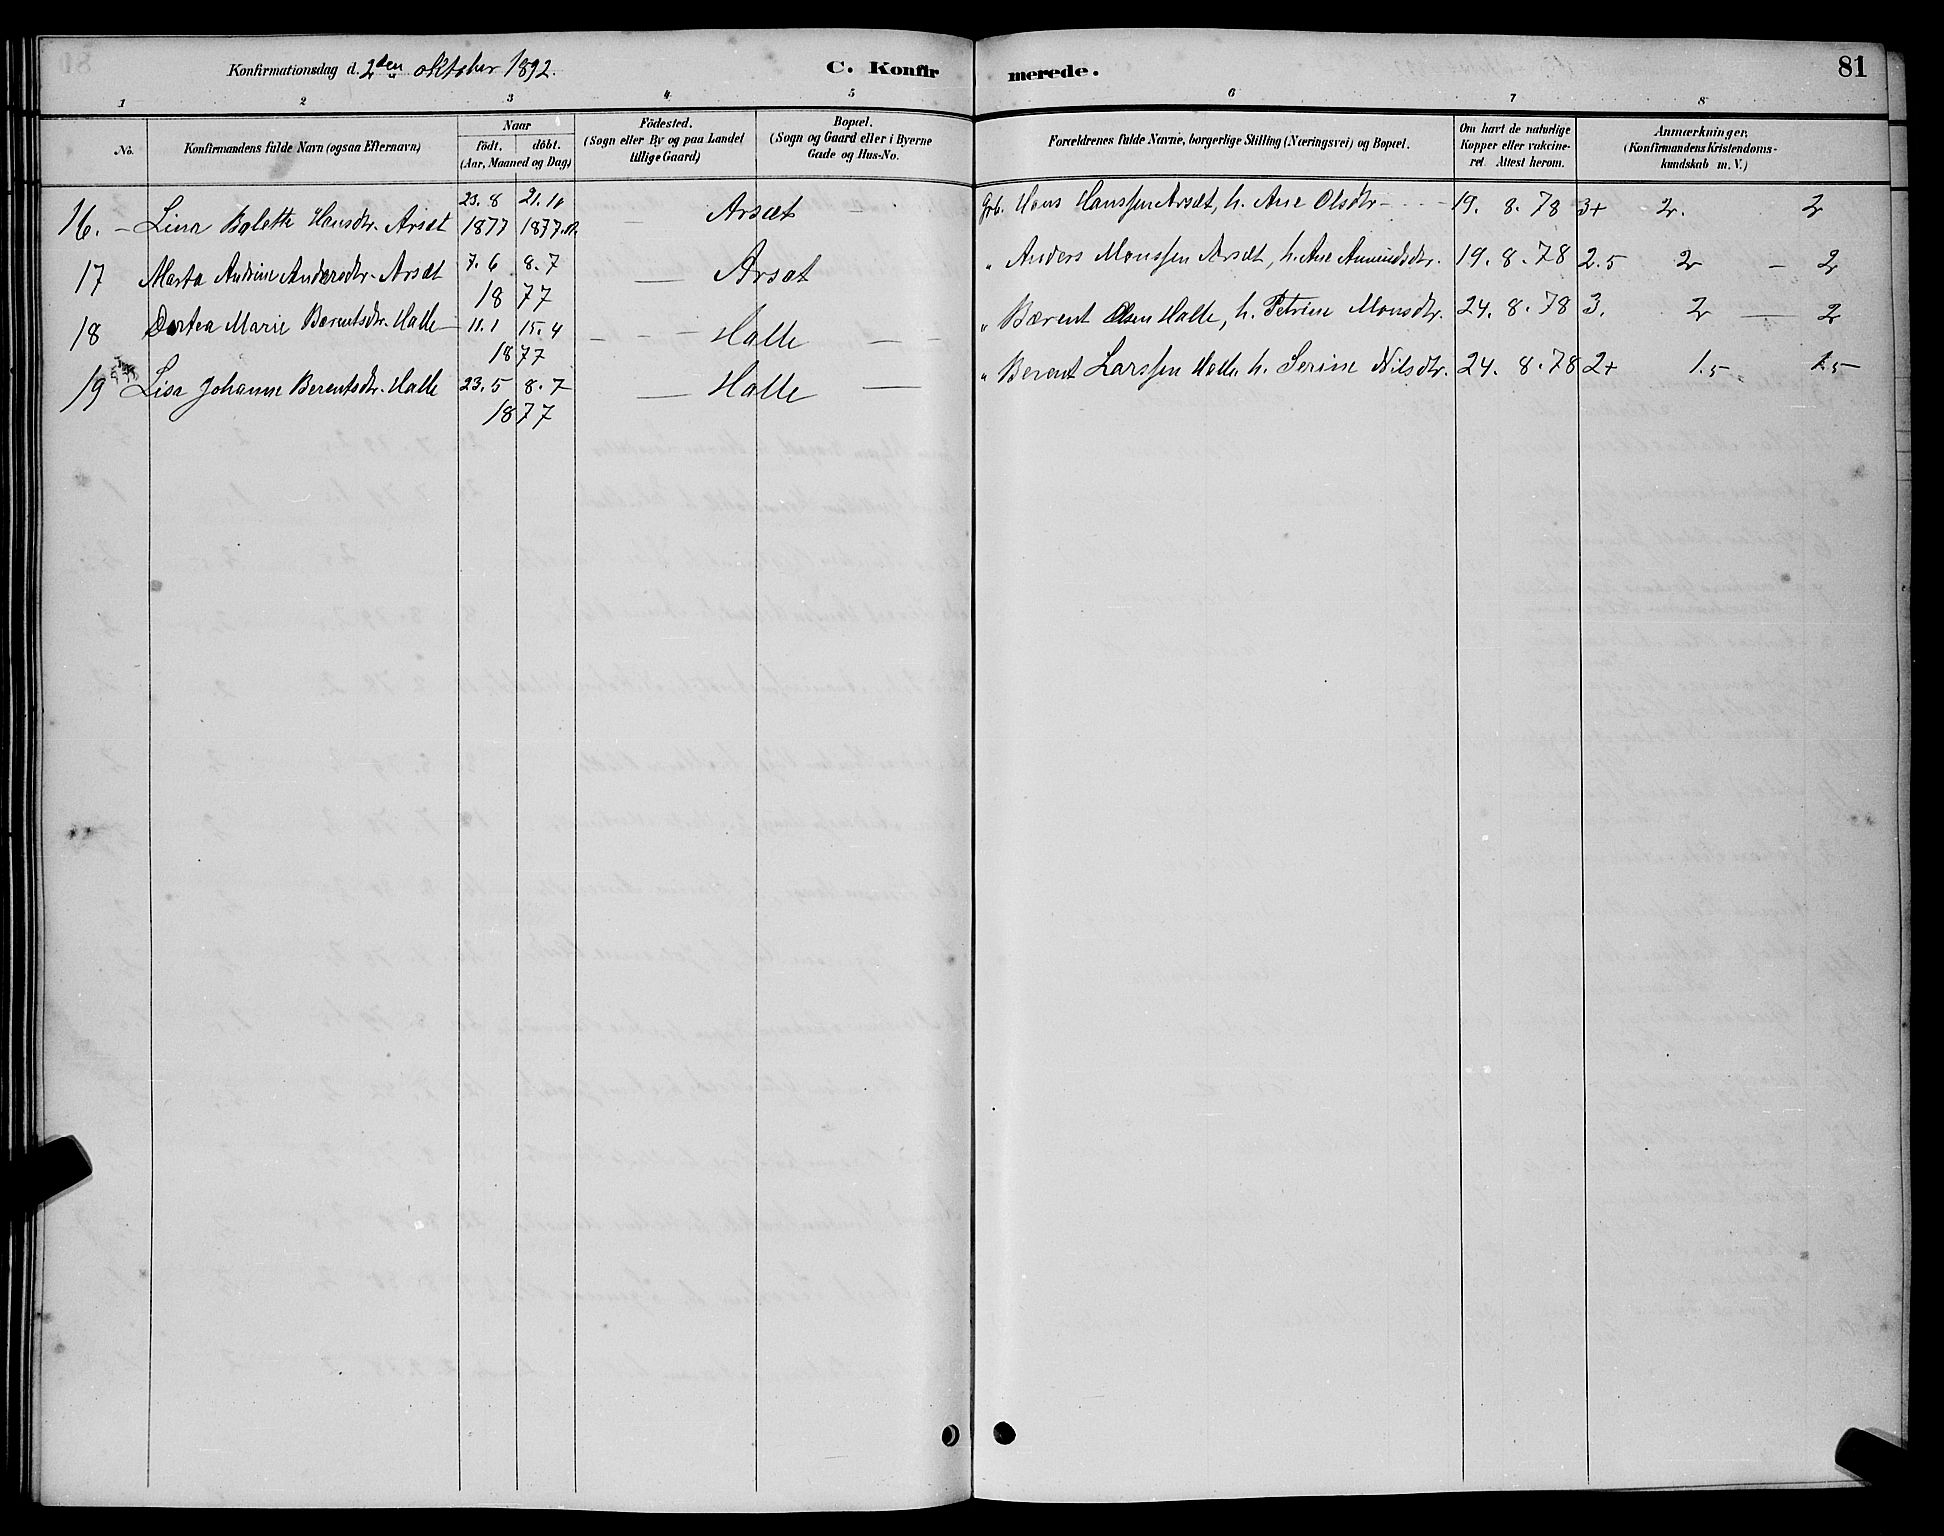 Konfirmationsdag d. 2den oktober 1892.
C. Konfirmerede.
81
1 2 3 4 5 6 7 8
No.
Konfirmandens fulde Navn (ogsaa Efternavn)
Naar
födt. döbt.
(Aar, Maaned og Dag)
Födested.
(Sogn eller By og paa Landet
tillige Gaard)
Bopæl.
(Sogn og Gaard eller i Byerne
Gade og Hus-No.
Forældrenes fulde Navne, borgerlige Stilling (Næringsvei) og Bopæl.
Om havt de naturlige
Kopper eller vakcine-
ret. Attest herom.
Anmærkninger.
(Konfirmandens Kristendoms-
kundskab m. V.)
16. – Lina Balette Hansdtr. Arsæt 23.8 1877 Arsæt Grb. Hans Hanssen Arsæt, h. Ane Olsdtr – 19. 8. 78 3+ 2. 2
17 Marta Andrine Andersdtr. Arsæt 7.6 8.7 1877 — Arsæt " Anders Monssen Arsæt, h. Ane Amundsdtr. 19. 8. 78 2.5 2 – 2
18 Dortea Marie Bærentsdtr. Halle 11.1 15.4 1877 – – – Halle — – " Bærent Olsen Halle, h. Petrine Monsdtr. 24. 8. 78 3. 2 — 2
19 Lisa Johanne Berentsdtr. Halle 23.5 8.7 1877 — Halle — " Berent Larssen Halle, h. Serine Nilsdtr. 24. 8. 78 2+ 1.5 1.5